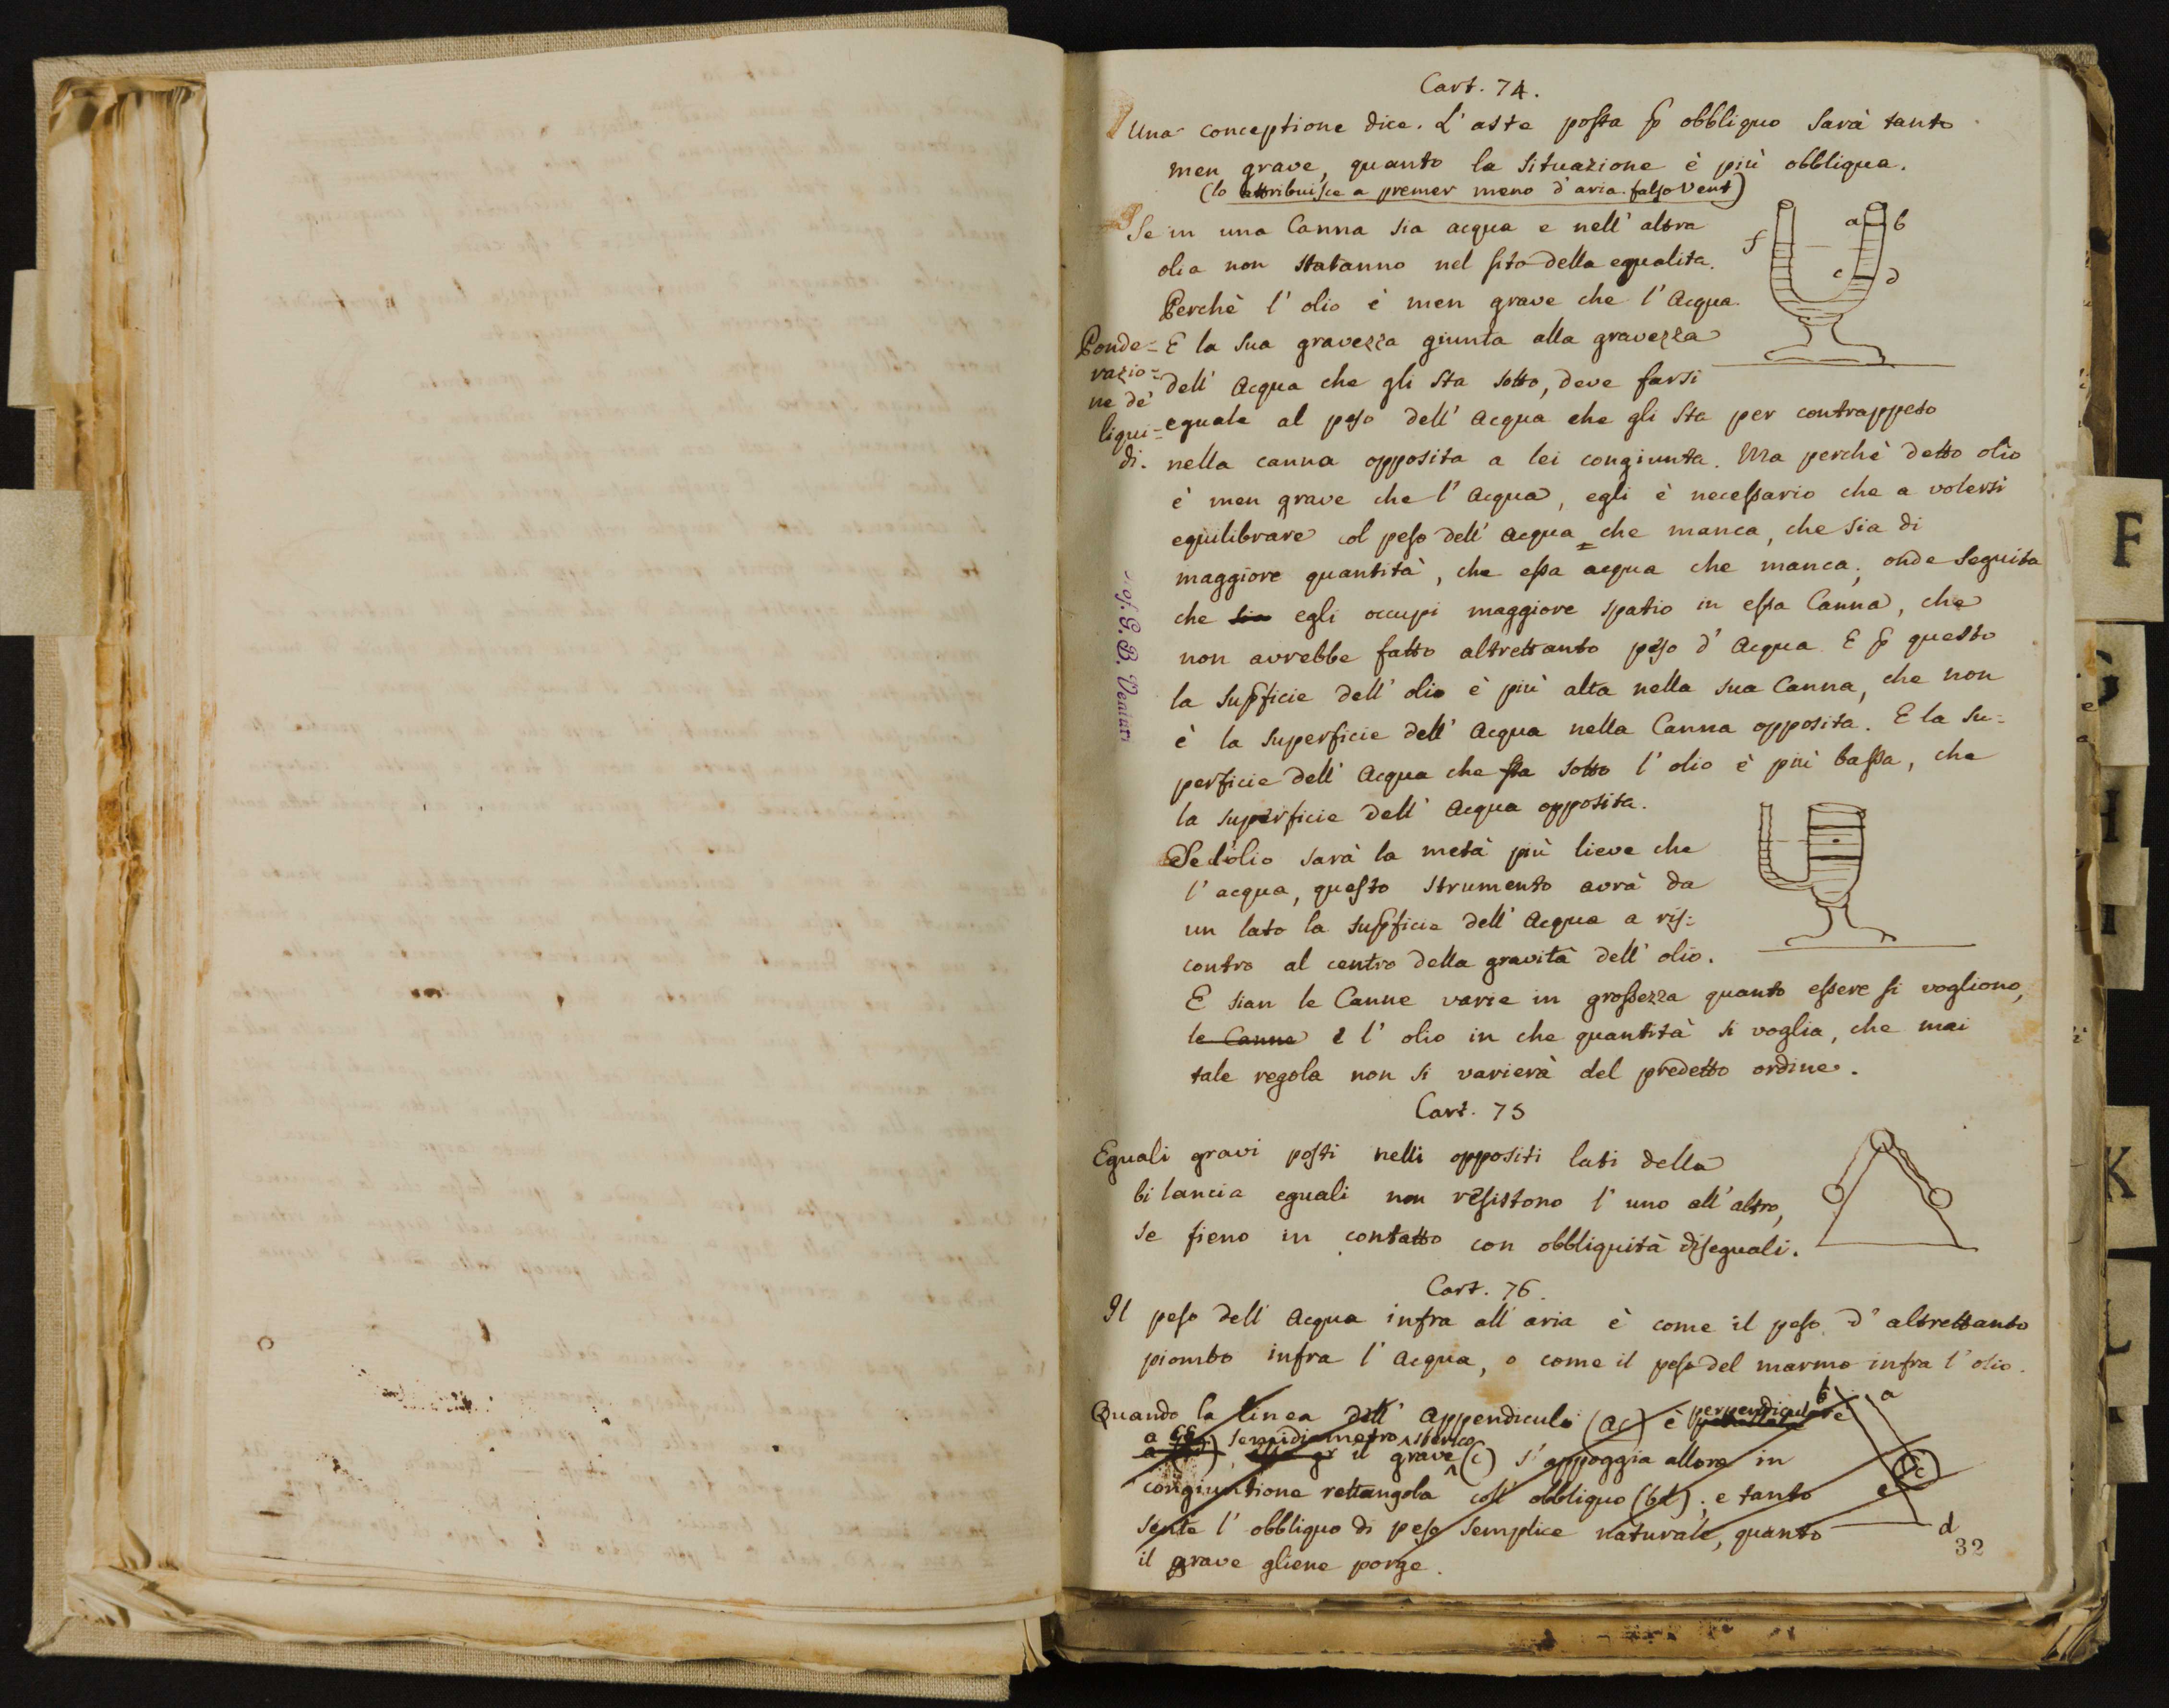 Cart. 74.
Una conceptione dice. L'aste posta p obbliquo sarà tanto
men grave, quanto la situazione è più obbliqua.
(lo attribuisce a premer meno d'aria. falso Vent)
Se in una Canna sia acqua e nell'altra
olio non staranno nel sito della egualita.
Perchè l'olio è men grave che l'Acqua.
E la sua gravezza giunta alla gravezza
dell'Acqua che gli sta sotto, deve farsi
eguale al peso dell'Acqua che gli sta per contrappeso
nella canna opposita a lei congiunta. Ma perchè detto olio
è men grave che l'Acqua, egli è necessario che a volersi
equilibrare col peso dell'Acqua che manca, che sia di
maggiore quantità, che essa acqua che manca; onde seguita
che sia egli occupi maggiore spatio in essa Canna, che
non avrebbe fatto altrettanto peso d'Acqua. E p questo
la supficie dell'olio è più alta nella sua Canna, che non
è la superficie dell'Acqua nella Canna opposita. E la su=
perficie dell'Acqua che sta sotto l'olio è più bassa, che
la superficie dell'Acqua opposita.
Ponde=
razio=
ne de'
liqui=
di.
f
a b
c d
Prof. G. B. Venturi
Se l'olio sarà la metà più lieve che
l'acqua, questo strumento avrà da
un lato la supficie dell'Acqua a ris=
contro al centro della gravità dell'olio.
E sian le Canne varie in grossezza quanto essere si vogliono,
le Canne e l'olio in che quantità si voglia, che mai
tale regola non si varierà del predetto ordine.
Cart. 75
Eguali gravi posti nelli oppositi lati della
bilancia eguali non resistono l'uno all'altro,
se fieno in contatto con obbliquità diseguali.
Cart. 76.
Il peso dell'Acqua infra all'aria è come il peso d'altrettanto
piombo infra l'Acqua, o come il peso del marmo infra l'olio.
Quando la linea dell'Appendiculo (ac) è perpendiculare
a semidiametro sferico
il grave (c) s'appoggia allora in
congiuntione rettangola coll'obbliquo (bd); e tanto
sente l'obbliquo di peso semplice naturale, quanto
il grave gliene porge.
b a
c
e
d
32
F
G
H
I
K
L